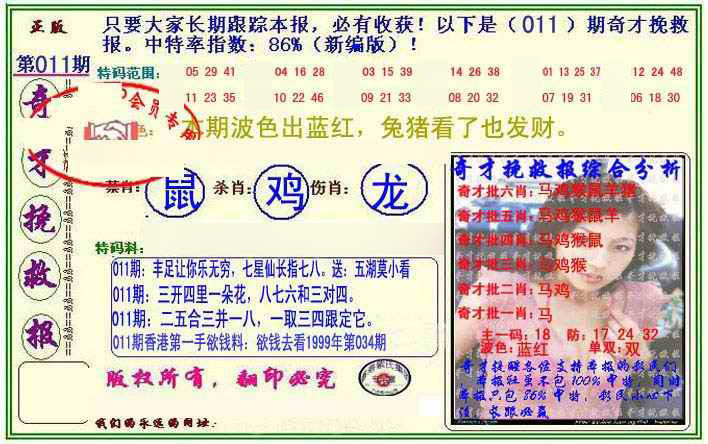 正版
只要大家长期跟踪本报，必有收获！以下是（011）期奇才挽救
报。中特率指数：86%（新编版）！
第011期
特码范围：
05 29 41 04 16 28 03 15 39 14 26 38 01 13 25 37 12 24 48
11 23 35 10 22 46 09 21 33 08 20 32 07 19 31 06 18 30
会员专
色：本期波色出蓝红，兔猪看了也发财。
奇才挽救报
禁肖：鼠 杀肖：鸡 伤肖：龙
特码料：
011期：丰足让你乐无穷，七星仙长指七八。送：五湖莫小看
011期：三开四里一朵花，八七六和三对四。
011期：二五合三并一八，一取三四跟定它。
011期香港第一手欲钱料：欲钱去看1999年第034期
版权所有，翻印必究
我们的永远的网址：
奇才挽救报综合分析
奇才批六肖：马鸡猴鼠羊猪
奇才批五肖：马鸡猴鼠羊
奇才批四肖：马鸡猴鼠
奇才批三肖：马鸡猴
奇才批二肖：马鸡
奇才批一肖：马
主一码：18 防：17 24 32
波色：蓝红 单双：双
奇才挽救各位支持本报的彩民们
，本报往虽不包100%中特，同时
本报只包86%中特，彩民小心下
注，长跟必赢